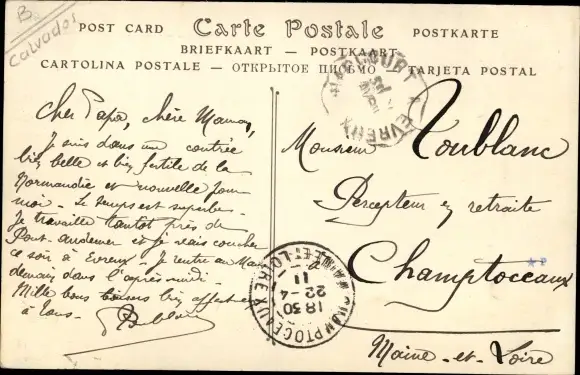 B.
Calvados
POST CARD Carte Postale POSTKARTE
BRIEFKAART — POSTKAART
CARTOLINA POSTALE — ОТКРЫТОЕ ПИСЬМО — TARJETA POSTAL
Cher Papa, chère Maman,
Je suis dans une contrée
bien belle et bien fertile de la
Normandie et nouvelle pour
moi. Le temps est superbe.
Je travaille tantôt près de
Pont-Audemer et je vais coucher
ce soir à Evreux. Je rentre au Mans
demain dans l'après-midi.
Mille bons baisers bien affectueux
à tous.
EVREUX
Monsieur Toublanc
Percepteur en retraite
à
Champtoceaux
Maine-et-Loire
CHAMPTOCEAUX
MAINE-ET-LOIRE
18 30
22-4
11